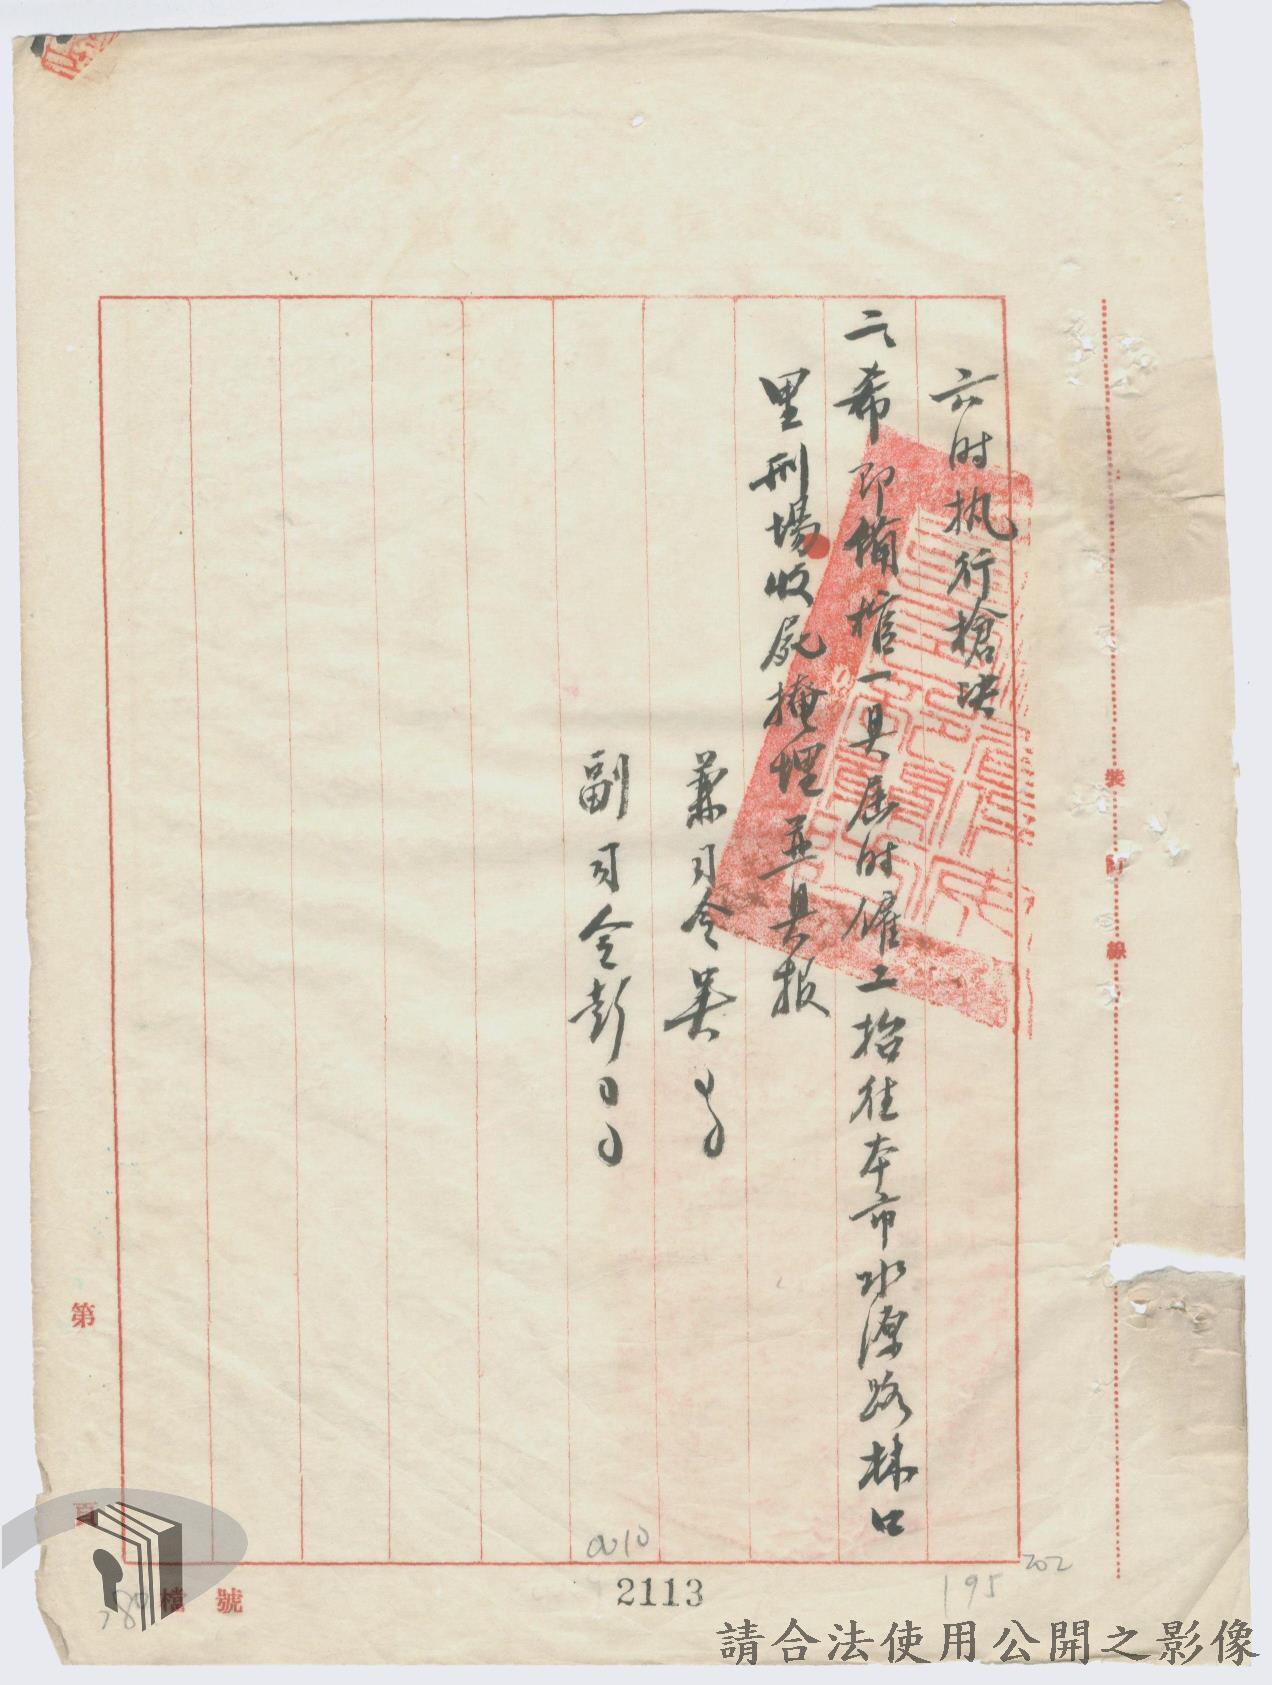 六时执行槍决
二、希即備棺一具屆时僱工抬往本市水源路林口
里刑場收屍掩埋並具报
兼司令吳
副司令彭
裝訂線
第
頁
檔號
0010
2113
195
202
請合法使用公開之影像